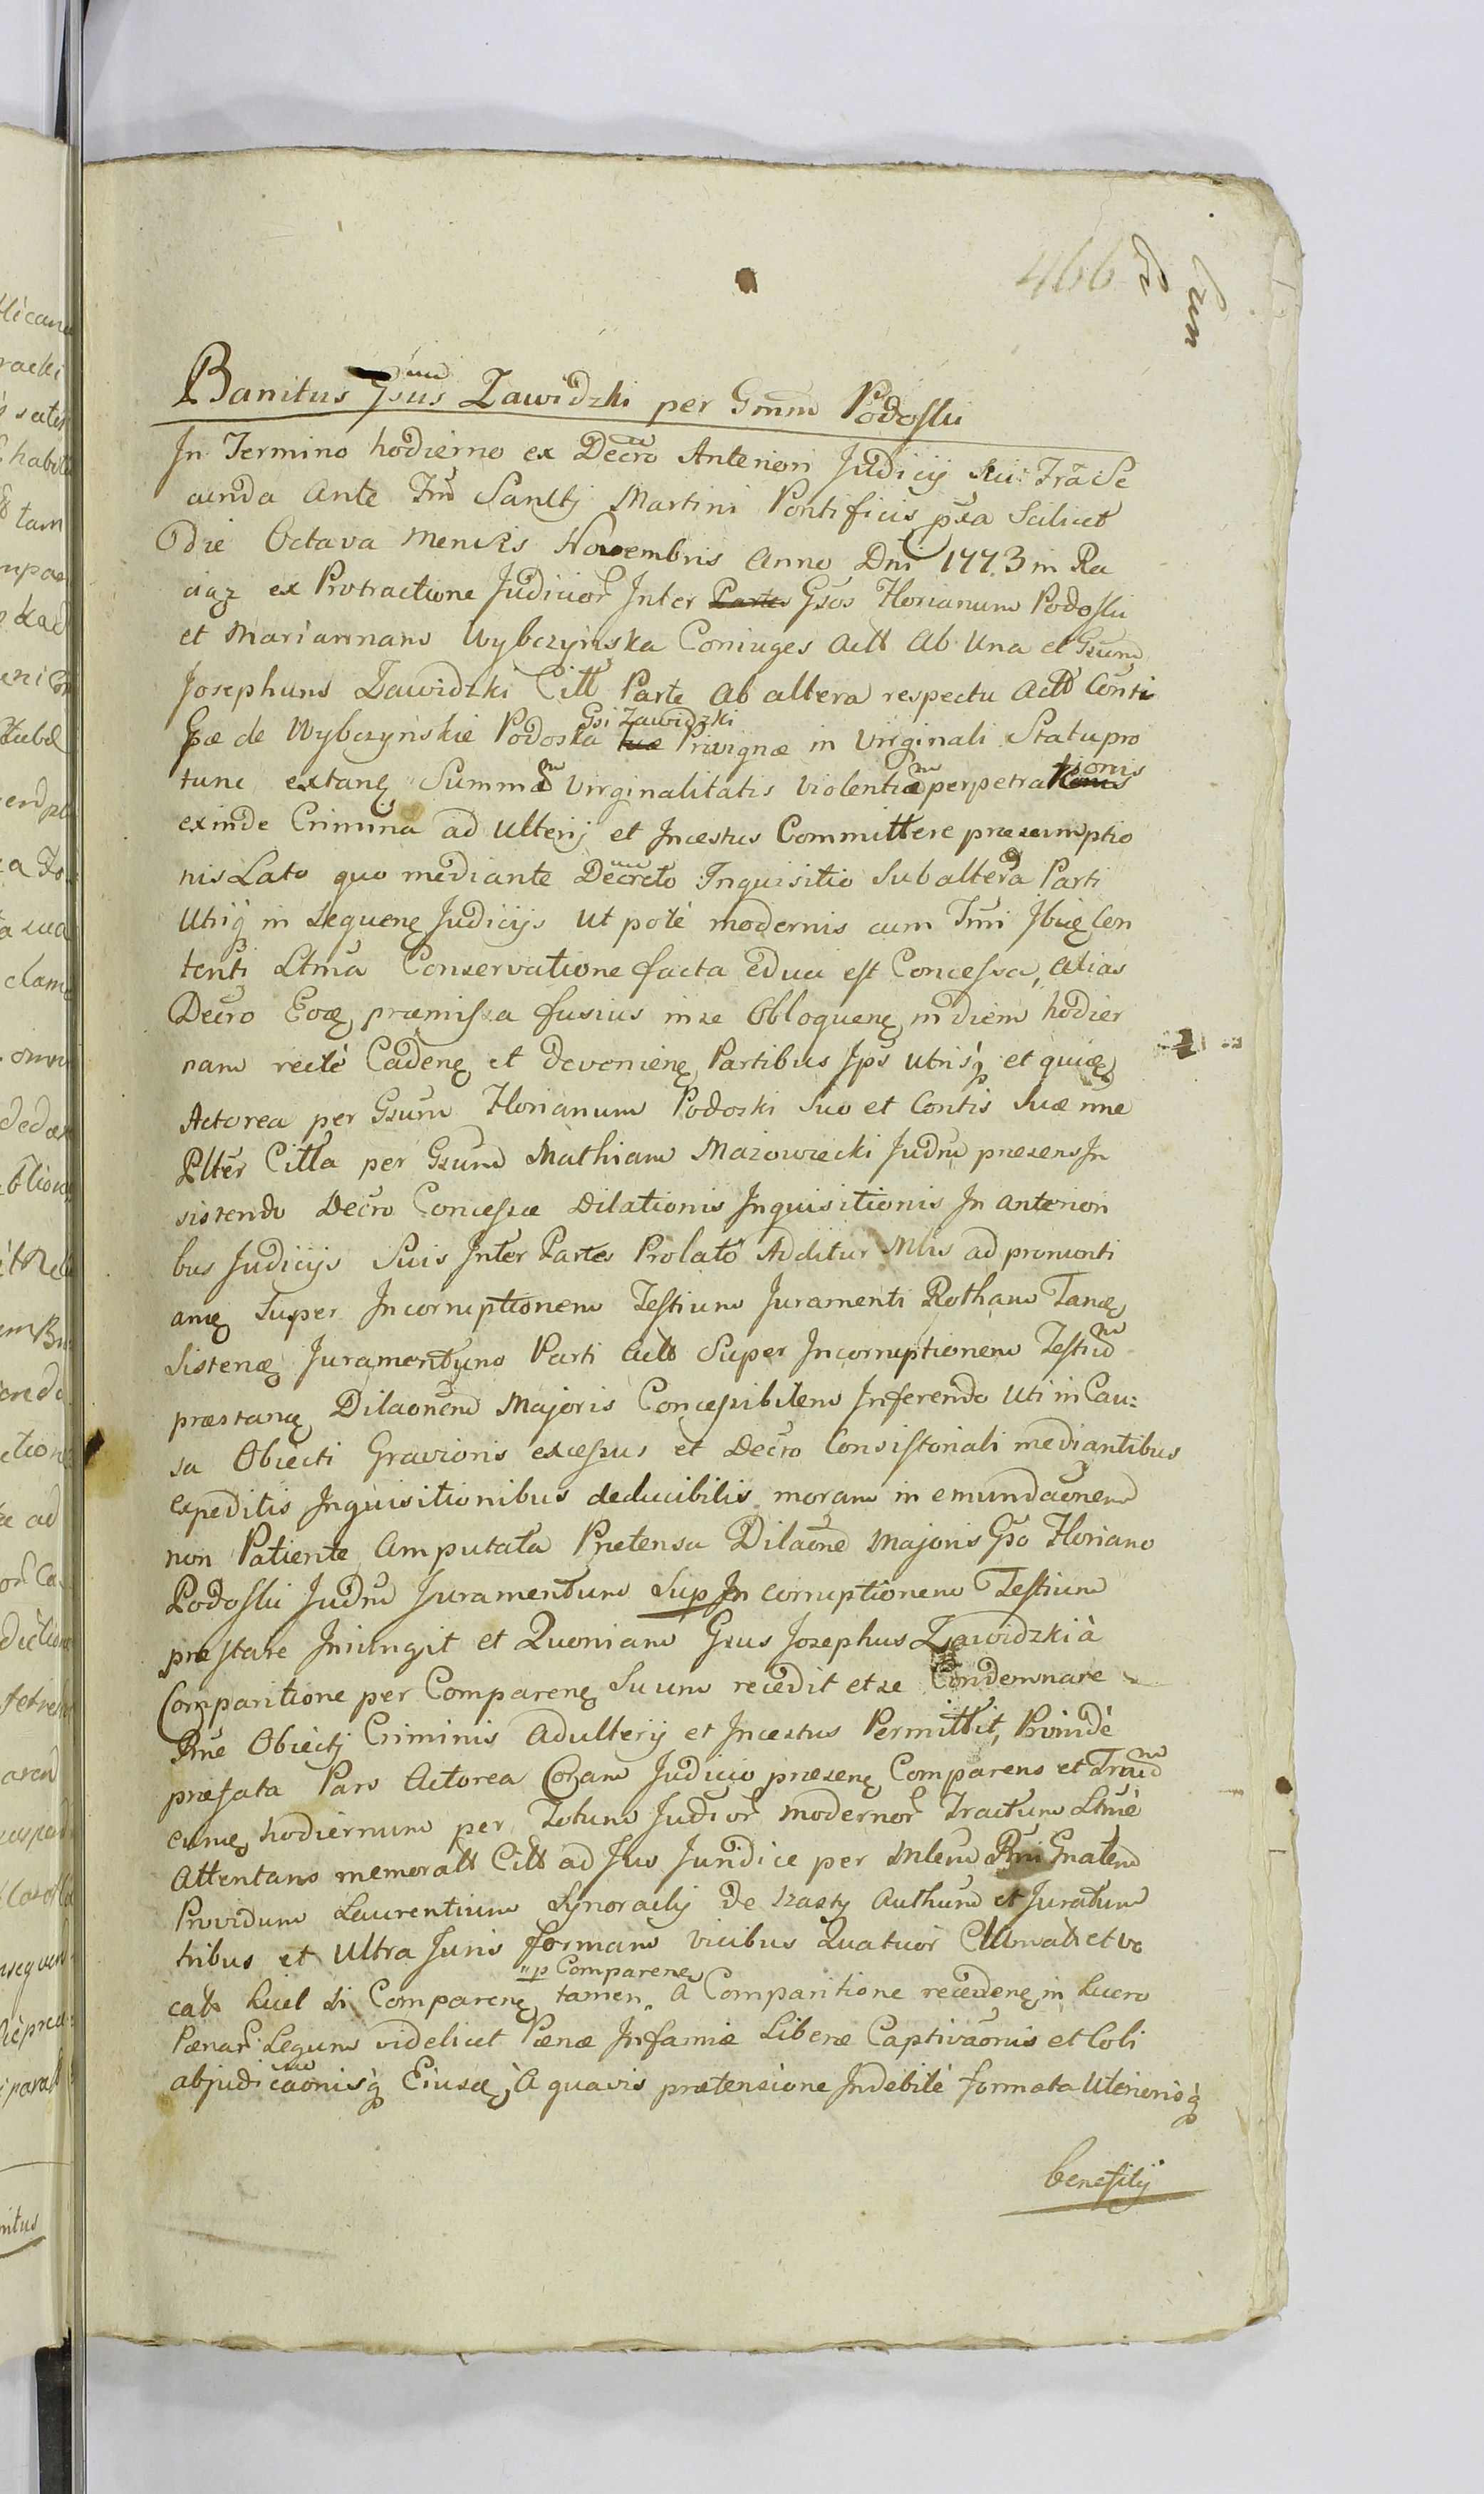 466
Banitus Gsus Zawidzki per Gnm Podoski
In Termino hodierno ex Decro Anteriori Judicij Sui Fra Se
cunda Ante Fm Sanctj Martini Pontificis pxa Scilicet
Die Octava Mensis Novembris Anno Dni 1773 in Ra
ciąz ex Protractione Judicior Inter Gsos Florianum Podoski
et Mariannam Wybczyńska Coniuges Actt Ab Una et Gsum
Josephum Zawidzki Citt Parte Ab altera respectu Actt Consti
Gsæ de Wybczyńskie Podoska Gsi Zawidzki Privignæ in Virginali Statu pro
tunc extanę Summæ Virginalitatis Violentiæ perpetrationis
exinde Crimina ad Ulterij et Incestus Committere præsumptio
nis Lato quo mediante Decreto Inquisitio Sub altera Parti
Utriq in sequenę Judicijs Ut poté modernis cum Tmi Ibię Con
tenti Ltma Conservatione facta educi est Concessa, Alias
Decro Eoę præmissa fusius in se Obloquenę in diem hodier
nam recté Cadenę et devenienę Partibus Ips utrisq et quidę
Actorea per Gsum Florianum Podoski Suo et Contis Suæ nne
Alter Citta per Gsum Mathiam Mazowiecki Judm præsens In
sistendo Decro Concessæ Dilationis Inquisitionis In anteriori
bus Judicijs Suis Inter Partes Prolato Additur Mlis ad pronunti
anę Super Incorruptionem Testium Juramenti Rotham Tanę
Sistenę Juramentum Parti Actt Super Incorruptionem Testium
præstanę Dilaonem Majoris Concessibilem Inferendo Uti in Cau:
sa Obiecti Gravioris excessus et Decro Consistoriali mediantibus
expeditis Inquisitionibus deducibilis moram in emundaonem
non Patiente Amputata Prætensa Dilaone Majoris Gso Floriano
Podoski Judm Juramentum Sup Incorruptionem Testium
præstare Iniungit et Quoniam Gsus Josephus Zawidzki à
Comparitione per Comparenę Suum recedit et se Condemnare
Rne Obiectj Criminis Adulterij et Incestus Permittit, Proindé
præfata Pars Actorea Coram Judicio præsenę Comparens et Trmum
eumę hodiernum per Totum Judior modernor Tractum Ltmé
Attentans memoratt Citt ad Jus Juridice per Mlem Rni Gnalem
Providum Laurentium Synoracky de Szasty Authum et Juratum
tribus et Ultra Juris formam vicibus Quatuor Clamatt et vo
catt Licet Si Comparenę tamen "p Comparenę A Comparitione recedenę in Lucro
Pænar Legum videlicet Pænæ Infamiæ Liberæ Captivaonis et Coli
abjudicaonisq Eiusę, A quavis prætensione Indebité formata Ulteriorisq
benefitij